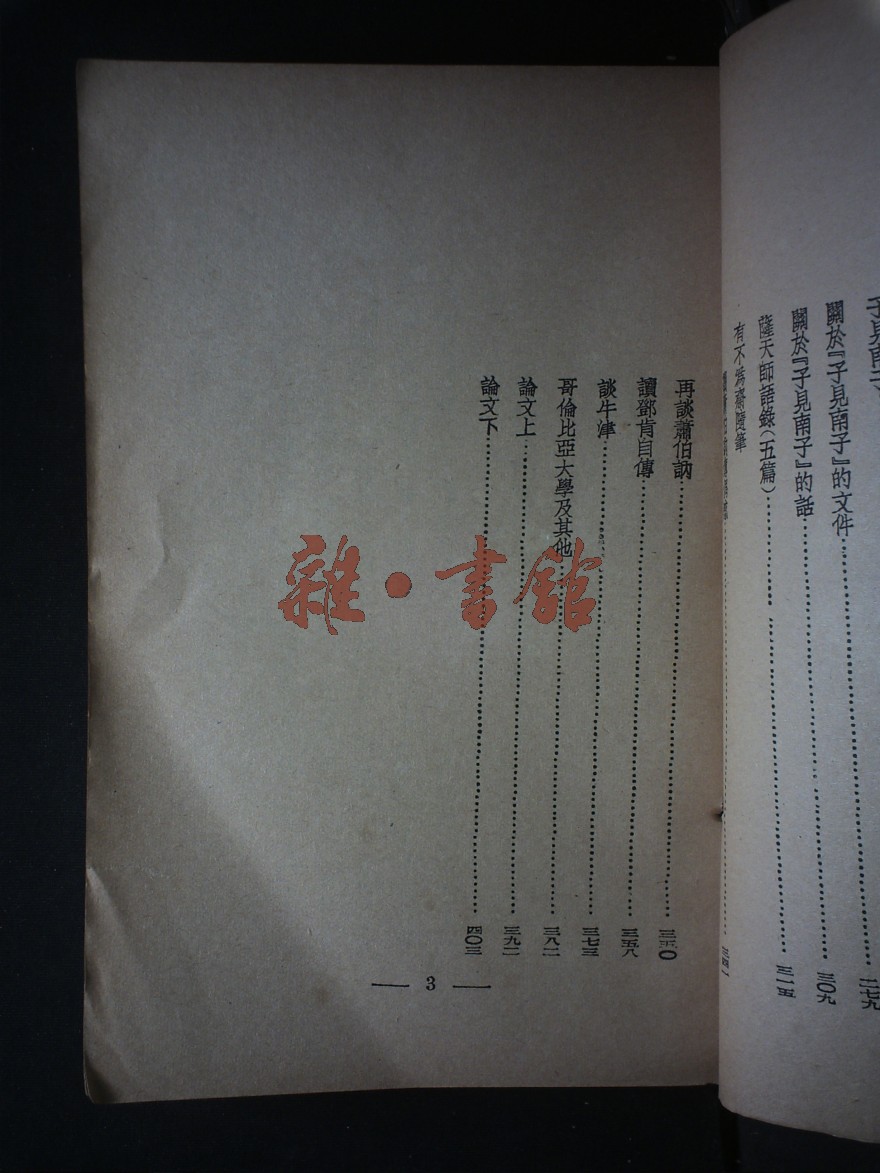 關於『子見南子』的文件 二七九
關於『子見南子』的話 三〇九
薩天師語錄(五篇) 三一五
有不為齋隨筆
再談蕭伯訥 三五〇
讀鄧肯自傳 三五八
談牛津 三七三
哥倫比亞大學及其他 三八二
論文上 三九二
論文下 四〇三
— 3 —
雜·書館